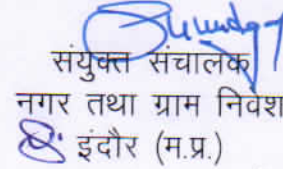 संयुक्त संचालक
नगर तथा ग्राम निवेश
इंदौर (म.प्र.)